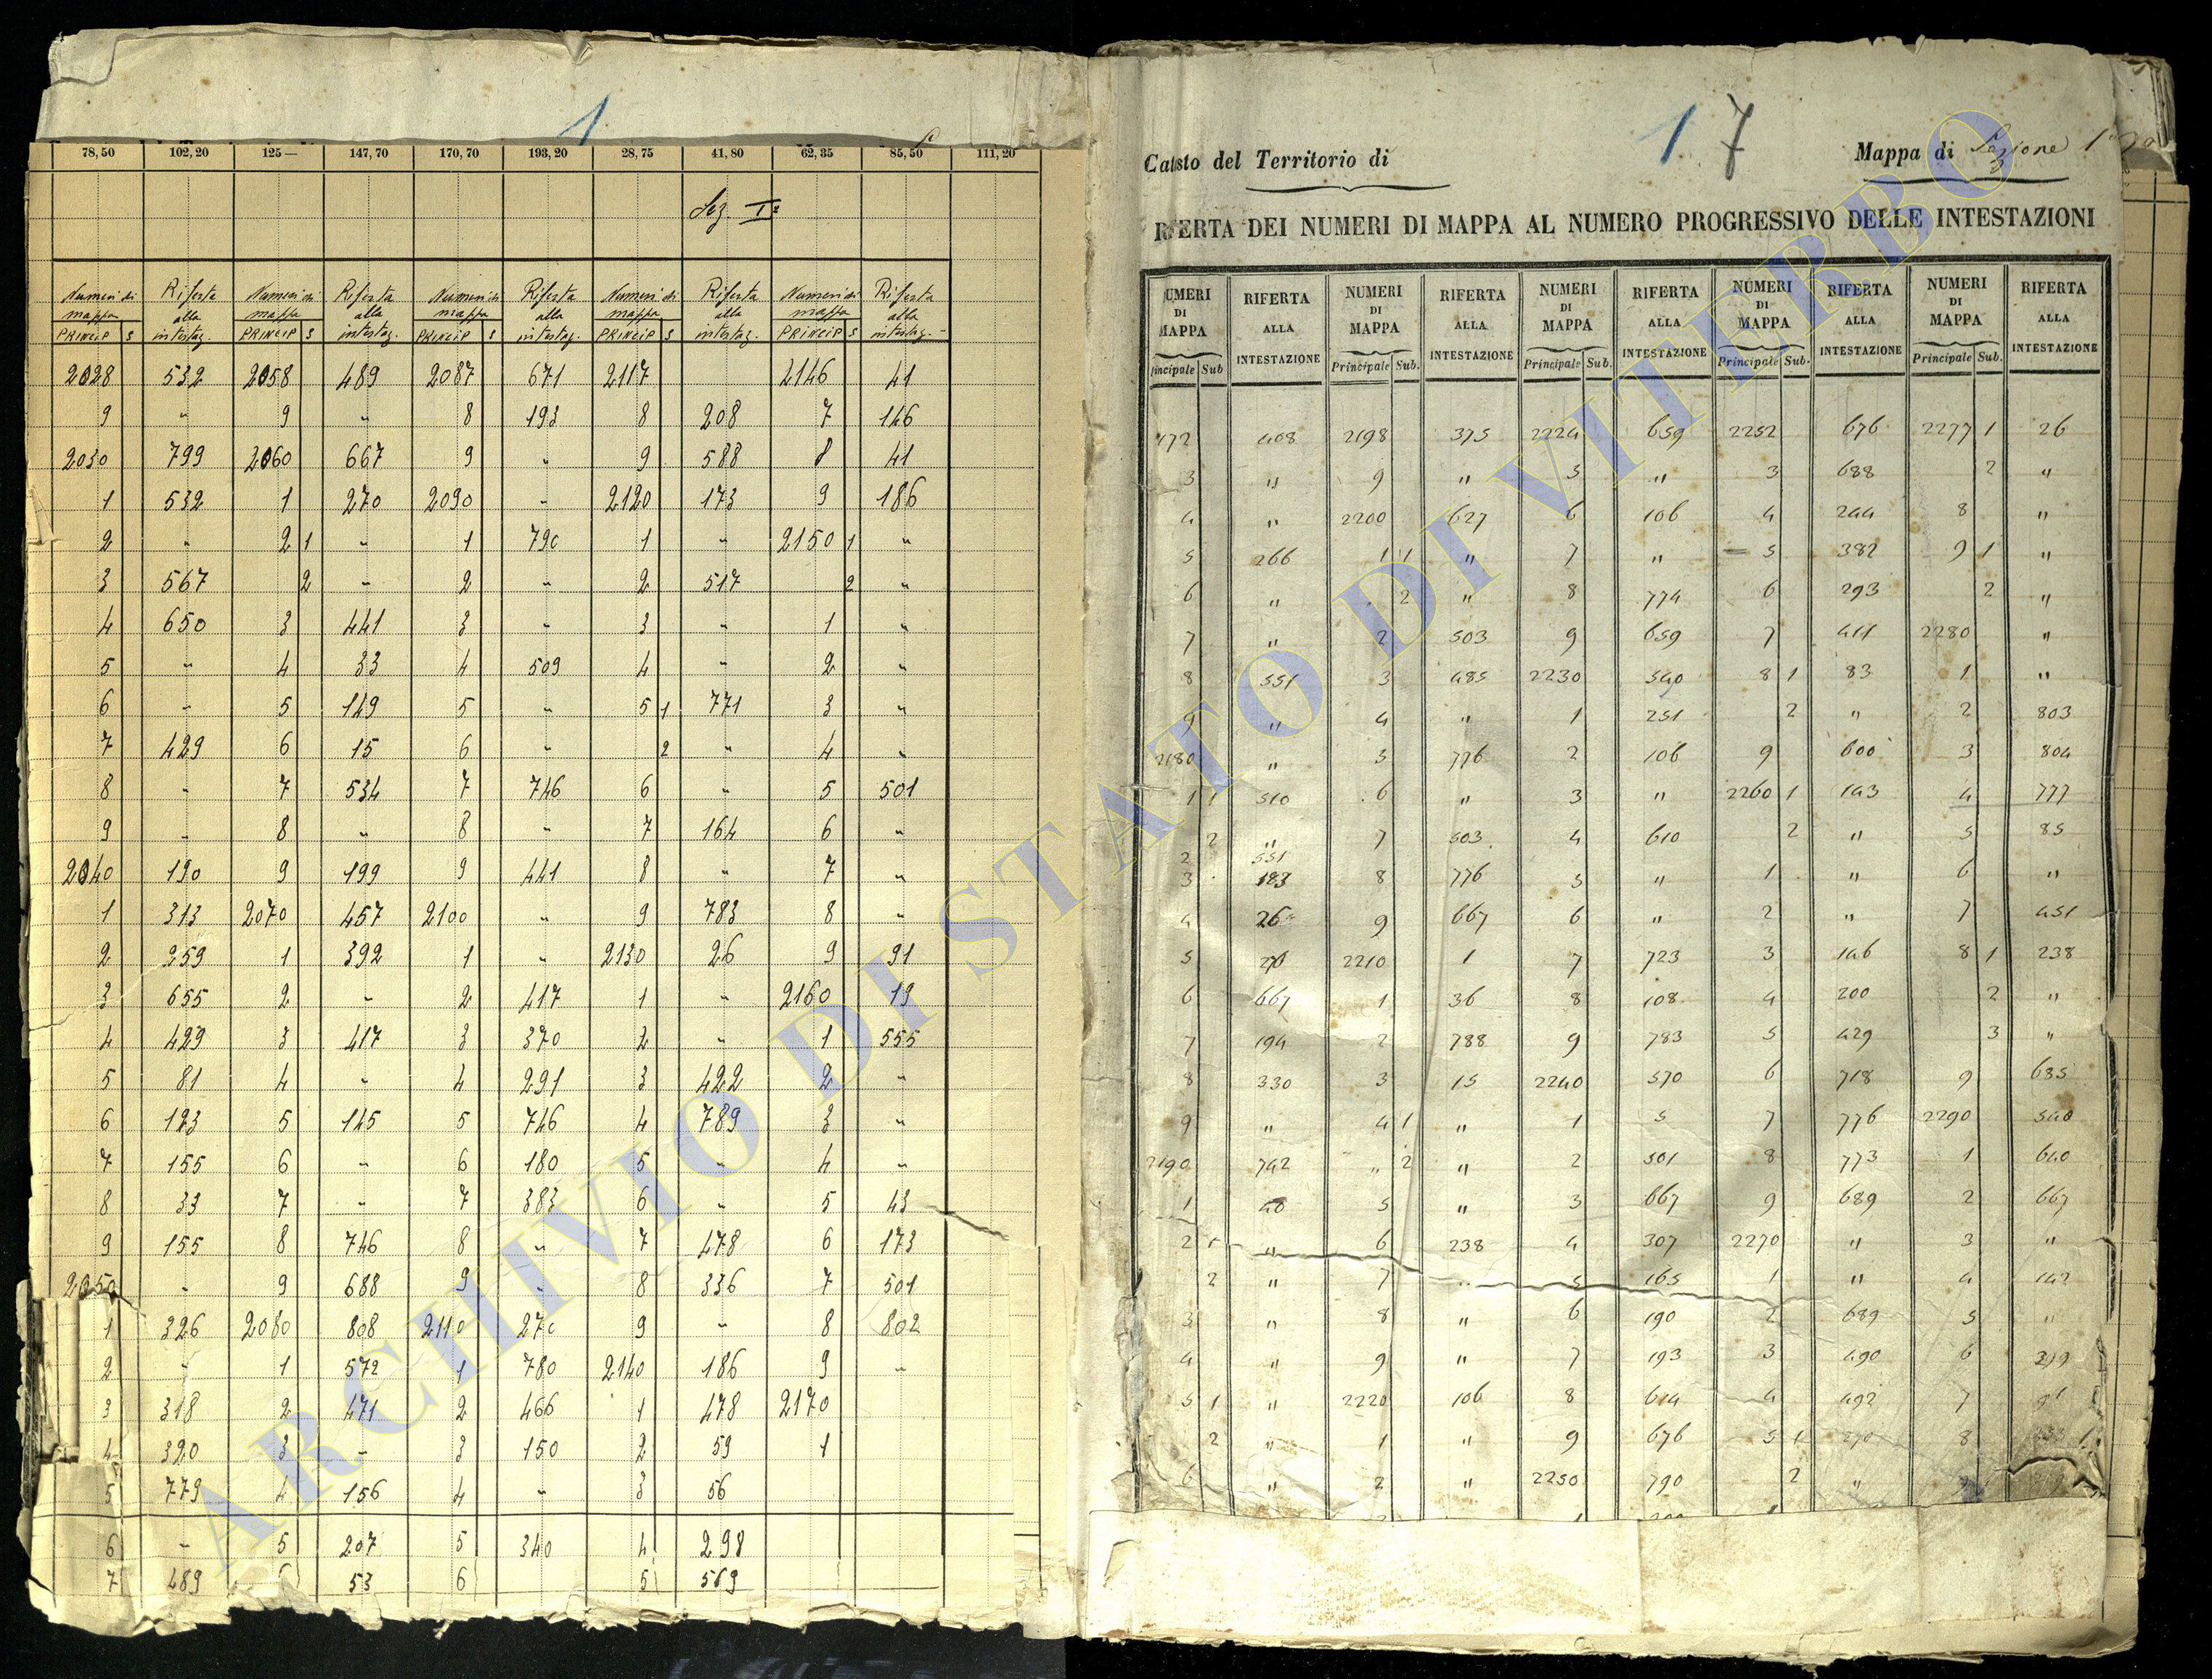 1
78,50 102,20 125— 147,70 170,70 193,20 28,75 41,80 62,35 85,50 111,20
Sez. Iª
Numeri di mappa Riferta alla intestaz. Numeri di mappa Riferta alla intestaz. Numeri di mappa Riferta alla intestaz. Numeri di mappa Riferta alla intestaz. Numeri di mappa Riferta alla intestaz.
PRINCIP S PRINCIP S PRINCIP S PRINCIP S PRINCIP S
2028 532 2058 489 2087 671 2117 2146 41
9 " 9 " 8 193 8 208 7 146
2030 799 2060 667 9 " 9 588 8 41
1 532 1 270 2090 " 2120 173 9 186
2 " 2 1 " 1 790 1 " 2150 1 "
3 567 2 " 2 " 2 517 2 "
4 650 3 441 3 " 3 " 1 "
5 " 4 33 4 509 4 " 2 "
6 " 5 149 5 " 5 1 771 3 "
7 429 6 15 6 " 2 " 4 "
8 " 7 534 7 746 6 " 5 501
9 " 8 " 8 " 7 164 6 "
2040 190 9 199 9 441 8 " 7 "
1 313 2070 457 2100 " 9 783 8 "
2 259 1 392 1 " 2130 26 9 91
3 655 2 " 2 417 1 " 2160 19
4 429 3 417 3 370 2 " 1 555
5 81 4 " 4 291 3 422 2 "
6 123 5 145 5 746 4 789 3 "
7 155 6 " 6 180 5 " 4 "
8 33 7 " 7 383 6 " 5 43
9 155 8 746 8 " 7 478 6 173
2050 " 9 688 9 " 8 336 7 501
1 326 2080 808 2110 270 9 " 8 802
2 " 1 572 1 780 2140 186 9 "
3 318 2 471 2 466 1 478 2170
4 320 3 " 3 150 2 59 1
5 779 4 156 4 " 3 56
6 " 5 207 5 340 4 298
7 489 6 53 6 5 569
1 7
Catasto del Territorio di Mappa di Sezione 1ª
RIFERTA DEI NUMERI DI MAPPA AL NUMERO PROGRESSIVO DELLE INTESTAZIONI
UMERI DI MAPPA RIFERTA ALLA INTESTAZIONE NUMERI DI MAPPA RIFERTA ALLA INTESTAZIONE NUMERI DI MAPPA RIFERTA ALLA INTESTAZIONE NUMERI DI MAPPA RIFERTA ALLA INTESTAZIONE NUMERI DI MAPPA RIFERTA ALLA INTESTAZIONE
incipale Sub Principale Sub. Principale Sub. Principale Sub. Principale Sub.
172 408 2198 375 2224 659 2252 676 2277 1 26
3 " 9 " 5 " 3 688 2 "
4 " 2200 627 6 106 4 244 8 "
5 266 1 1 " 7 " 5 382 9 1 "
6 " 2 " 8 774 6 293 2 "
7 " 2 503 9 659 7 411 2280 "
8 551 3 485 2230 540 8 1 83 1 "
9 " 4 " 1 251 2 " 2 803
2180 " 5 776 2 106 9 600 3 804
1 1 510 6 " 3 " 2260 1 143 4 777
2 " 7 503 4 610 2 " 5 85
2 551
3 183 8 776 5 " 1 " 6 "
4 26 9 667 6 " 2 " 7 451
5 26 2210 1 7 723 3 146 8 1 238
6 667 1 36 8 108 4 200 2 "
7 194 2 788 9 783 5 429 3 "
8 330 3 15 2240 570 6 718 9 635
9 " 4 1 " 1 5 7 776 2290 540
2190 742 " 2 " 2 501 8 773 1 640
1 40 5 " 3 667 9 689 2 667
2 1 " 6 238 4 307 2270 " 3 "
2 " 7 " 5 165 1 " 4 142
3 " 8 " 6 190 2 689 5 "
4 " 9 " 7 193 3 490 6 399
5 1 " 2220 106 8 614 4 492 7 91
2 " 1 " 9 676 5 1 270 8
6 " 2 " 2250 790 2 "
ARCHIVIO DI STATO DI VITERBO